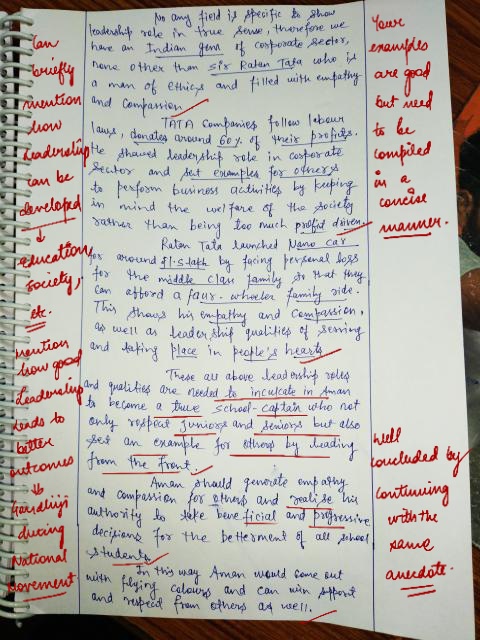 No any field is specific to show
leadership role in true sense, therefore we
have an Indian gem of corporate sector,
none other than sir Ratan Tata who is
a man of ethics and filled with empathy
and compassion.
TATA companies follow labour
laws, donates around 60% of their profits.
He showed leadership role in corporate
sector and set examples for others
to perform business activities by keeping
in mind the welfare of the society
rather than being too much profit driven.
Ratan Tata launched Nano car
for around ₹1.5 lakh by facing personal loss
for the middle class family so that they
can afford a four-wheeler family ride.
This shows his empathy and compassion,
as well as leadership qualities of serving
and taking place in people's hearts.
These all above leadership roles
and qualities are needed to inculcate in Aman
to become a true school-captain who not
only respect juniors and seniors but also
set an example for others by leading
from the front.
Aman should generate empathy
and compassion for others and realise his
authority to take bene ficial and progressive
decisions for the betterment of all school
students.
In this way Aman would come out
with flying colours and can win support
and respect from others as well.
Can
briefly
mention
how
leadership
can be
developed
↓
education,
society,
etc.
mention
how good
Leadership
leads to
better
outcomes
↓
Gandhiji
during
National
Movement
Your
examples
are good
but need
to be
compiled
in a
concise
manner.
Well
concluded by
continuing
with the
same
anecdote.